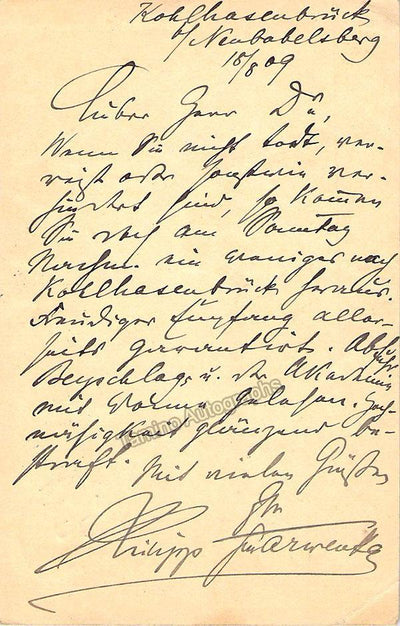 Kohlhasenbrück
b/Neubabelsberg
15/8 09
Lieber Herr Dr,
Wenn Sie nicht todt, ver-
reist oder sonstwie ver-
hindert sind, so kommen
Sie doch am Sonntag
Nachm. ein weniges nach
Kohlhasenbrück heraus.
Freudiger Empfang aller-
seits garantirt. Abfuhr
Beyschlags u. der Akademie
mit Wonne gelesen. Hoch-
näsigkeit glänzend be-
straft.
Mit vielen Grüßen
Ihr
Philipp Scharwenka
Tamino Autographs